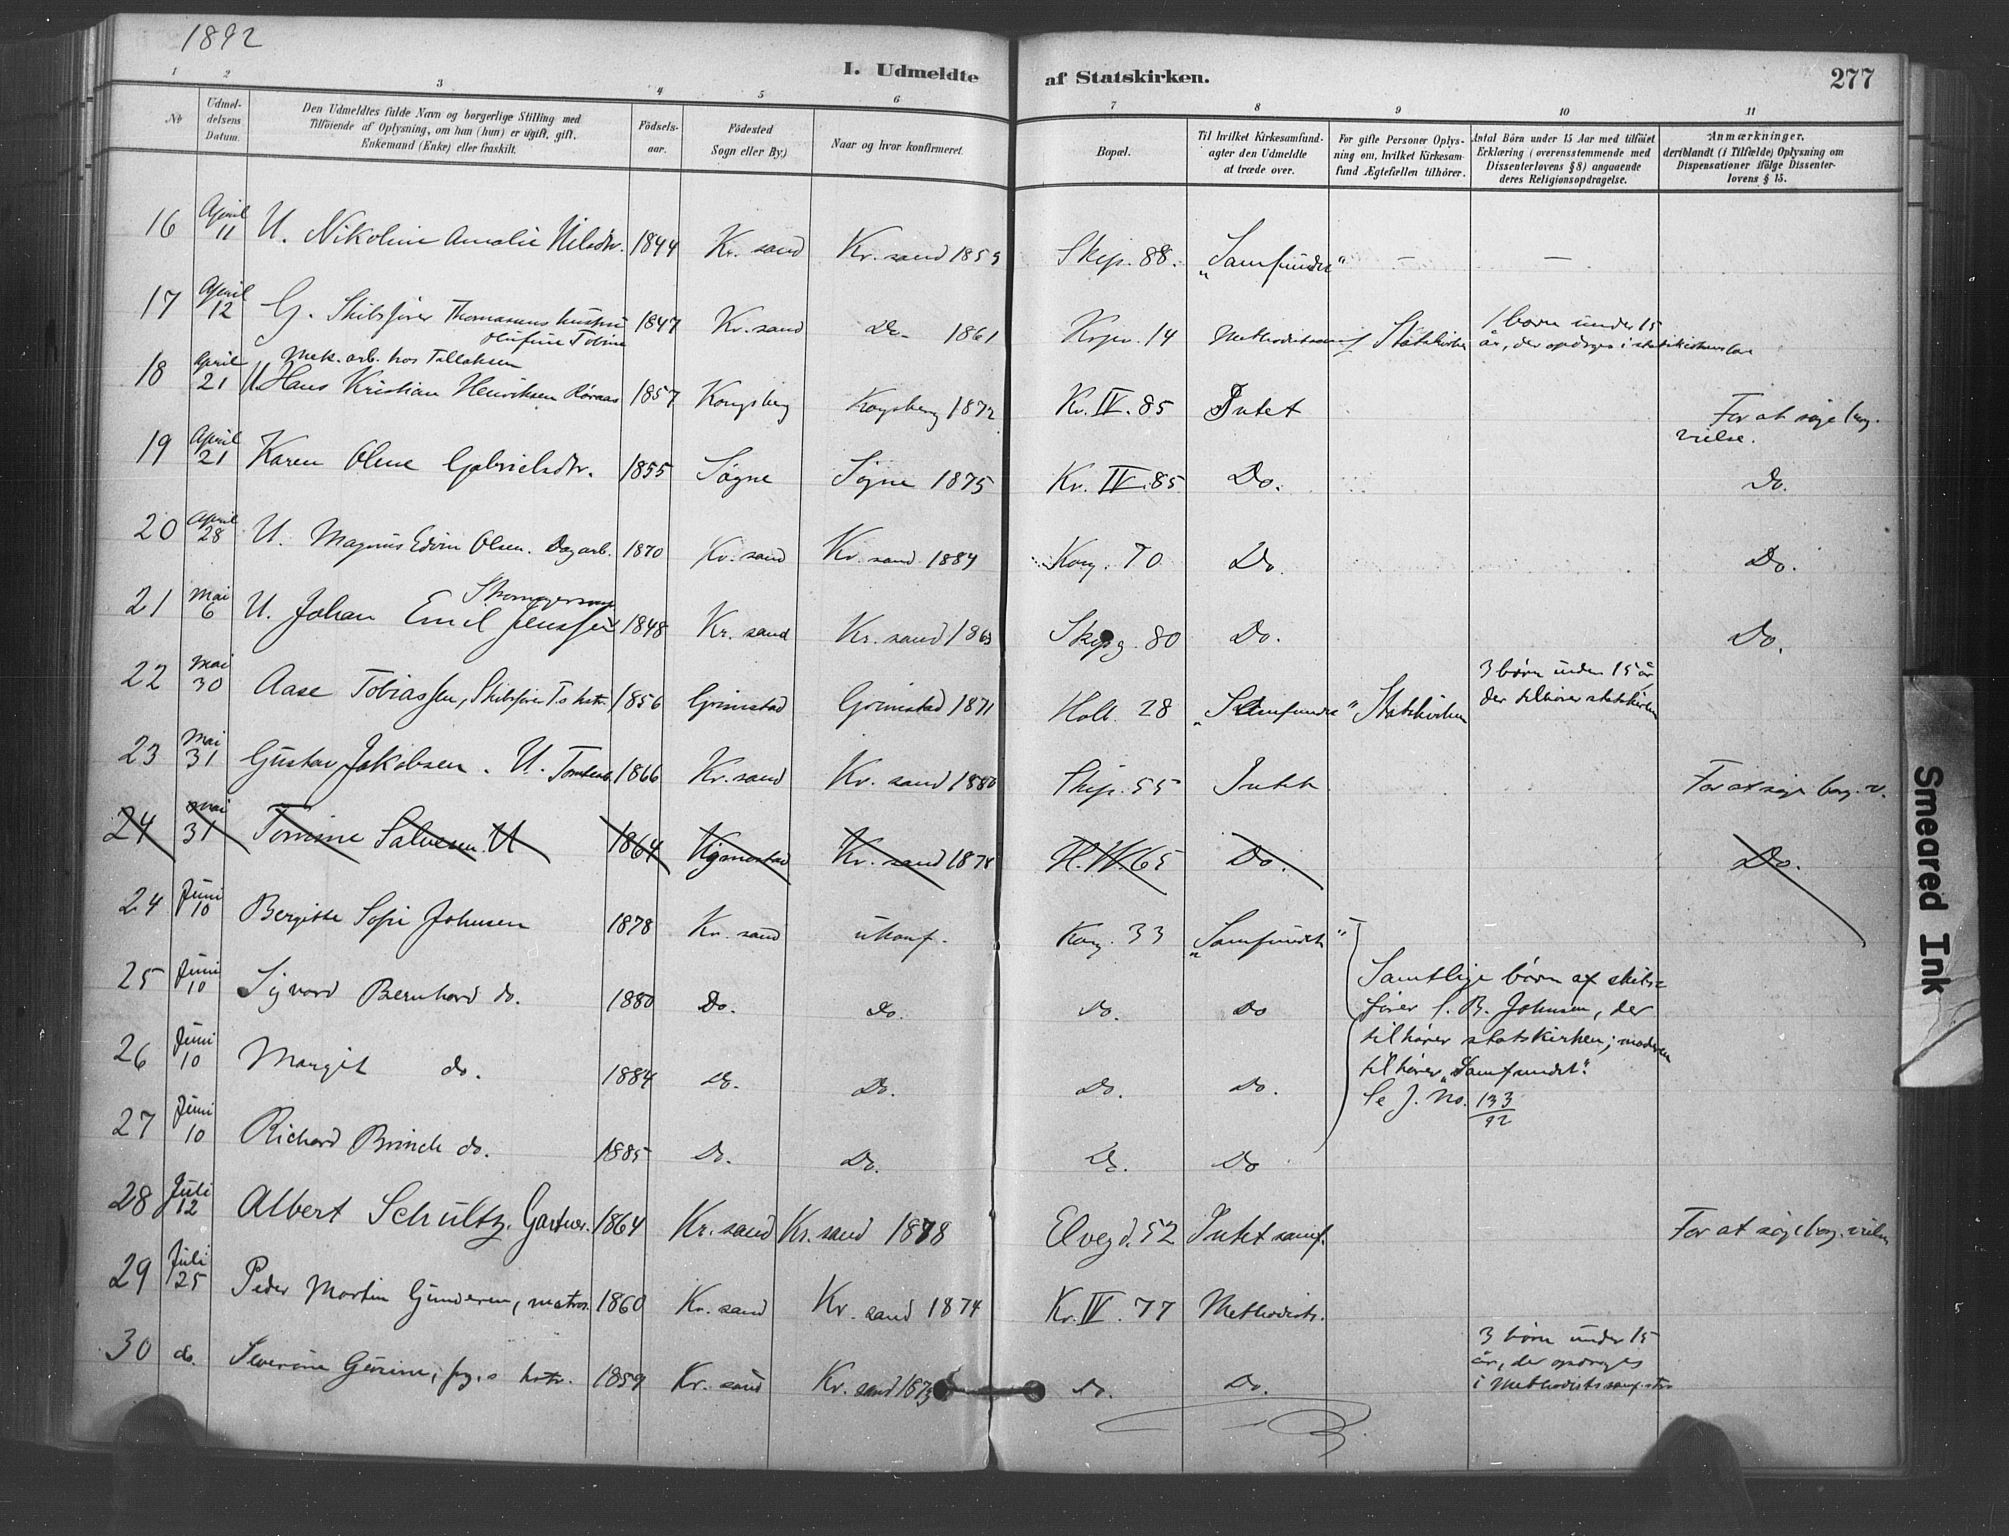 1892
I. Udmeldte af Statskirken.
277
1 2 3 4 5 6 7 8 9 10 11
No
Udmeldelsens Datum.
Den Udmeldtes fulde Navn og borgerlige Stilling med Tilføiende af Oplysning, om han (hun) er ugift, gift, Enkemand (Enke) eller fraskilt.
Födselsaar.
Födested Sogn eller By.)
Naar og hvor konfirmeret.
Bopæl.
Til hvilket Kirkesamfund agter den Udmeldte at træde over.
For gifte Personer Oplysning om, hvilket Kirkesamfund Ægtefællen tilhörer.
Antal Börn under 15 Aar med tilföiet Erklæring (overensstemmende med Dissenterlovens § 8) angaaende deres Religionsopdragelse.
Anmærkninger, deriblandt (i Tilfælde) Oplysning om Dispensationer ifölge Dissenterlovens § 15.
16 April 11 U. Nikoline Amalie Nilsdtr. 1844 Kr. sand Kr. sand 1859 Skip. 88. "Samfundet" — —
17 April 12 G. Skibsfører Thomasens hustru Olufine Tobine 1847 Kr. sand Do. 1861 14 Statskirken 1 barn under 15 år, der opdrages i
18 April 21 Mek. arb. hos Tallaksen
U. Hans Kristian Henriksen Røraas 1857 Kongsberg Kongsberg 1872 Kv. IV. 85 Intet For at søge borg. vielse.
19 April 21 Karen Oline Gabrielsdtr. 1855 Søgne Søgne 1875 Kv. IV. 85 Do. Do.
20 April 28 U. Magnus Edvin Olsen. Dagarb. 1870 Kr. sand Kr. sand 1884 Kong. 70 Do. Do.
21 Mai 6 U. Johan Emil Jenssen 1848 Kr. sand Kr. sand 1863 Skipg. 80 Do. Do.
22 Mai 30 Aase Tobiassen, Skibsfører T.s hstr. 1856 Grimstad Grimstad 1871 Holb. 28 "Samfundet" Statskirken 3 børn under 15 år der tilhører statskirken
23 Mai 31 Gustav Jakobsen. U. 1866 Kr. sand Kr. sand 1880 Skip. 55 Intet For at søge borg. v.
24 Mai 31 Tomine Salvesen U 1864 Kr. sand 1878 65 Do. Do.
24 Juni 10 Bergitte Sofie Johnsen 1878 Kr. sand ukonf. Kong. 33 "Samfundet"
25 Juni 10 Sigvard Bernhard do. 1880 Do. Do. Do. Do
26 Juni 10 Margit do. 1884 Do. Do. Do. Do.
27 Juni 10 Richard Brinch do. 1885 Do. Do. Do. Do
Samtlige børn af skibsfører C. B. Johnsen, der
tilhører statskirken; moderen
tilhører "Samfundet".
Se J. No. 133/92
28 Juli 12 Albert Schultz. Gartner. 1864 Kr. sand Kr. sand 1878 Elvegd. 52 Intet samf. For at søge borg. vielse
29 Juli 25 Peder Martin Gundersen, matros. 1860 Kr. sand Kr. sand 1874 Kv. IV. 77 Methodists.
30 do. Severine Gurine, frg.s hstr. 1859 Kr. sand Kr. sand 1873 Do. Do. 3 børn under 15
år, der opdrages
i Methodistsamf.
Smeared Ink